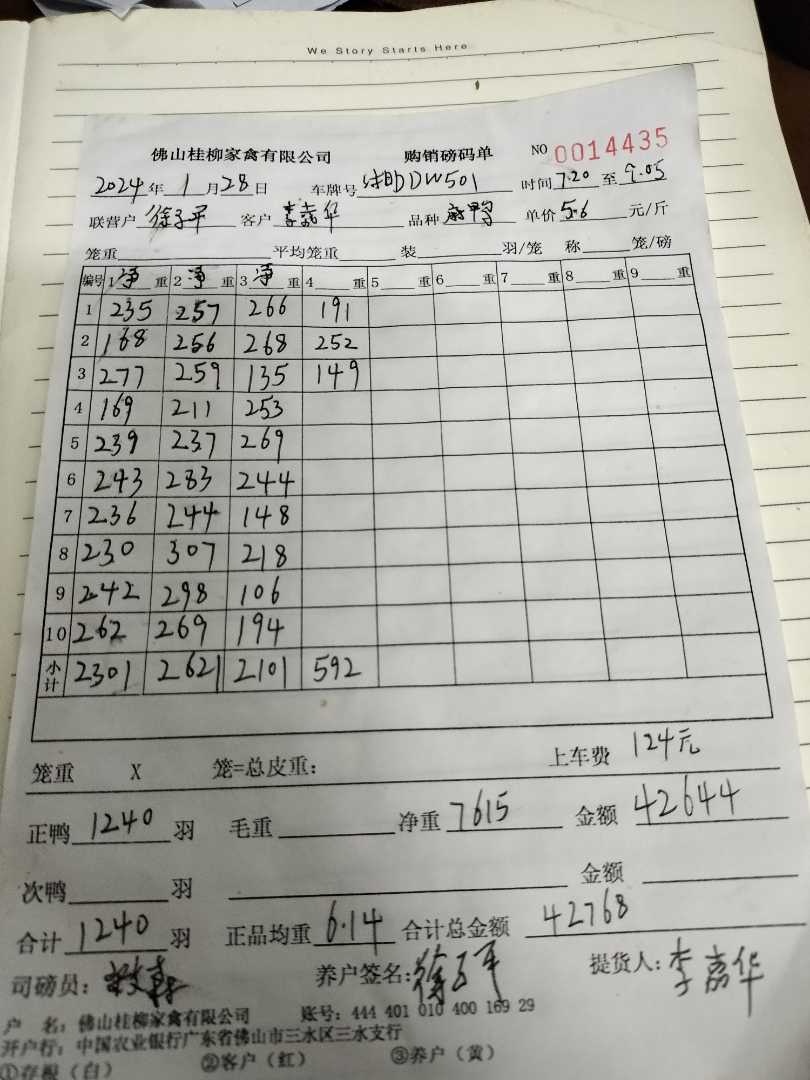 We Story Starts Here
佛山桂柳家禽有限公司 购销磅码单 NO 0014435
2024年1月28日 车牌号 DDW501 时间7.20至9.05
联营户 客户李嘉华 品种麻鸭 单价5.6元/斤
笼重 平均笼重 装 羽/笼 称 笼/磅
编号 1净重 2净重 3净重 4 重 5 重 6 重 7 重 8 重 9 重
1 235 257 266 191
2 168 256 268 252
3 277 259 135 149
4 169 211 253
5 239 237 269
6 243 283 244
7 236 244 148
8 230 307 218
9 242 298 106
10 262 269 194
小计 2301 2621 2101 592
笼重 X 笼=总皮重: 上车费 124元
正鸭1240羽 毛重 净重7615 金额42644
次鸭 羽 金额
合计1240羽 正品均重6.14 合计总金额42768
司磅员: 养户签名: 提货人:李嘉华
户 名: 佛山桂柳家禽有限公司 账号: 444 401 010 400 169 29
开户行: 中国农业银行广东省佛山市三水区三水支行
①存根(白) ②客户(红) ③养户(黄)